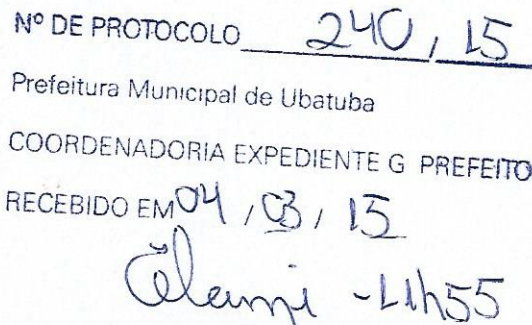 Nº DE PROTOCOLO 240 / 15
Prefeitura Municipal de Ubatuba
COORDENADORIA EXPEDIENTE G PREFEITO
RECEBIDO EM 04 / 03 / 15
- 11h55